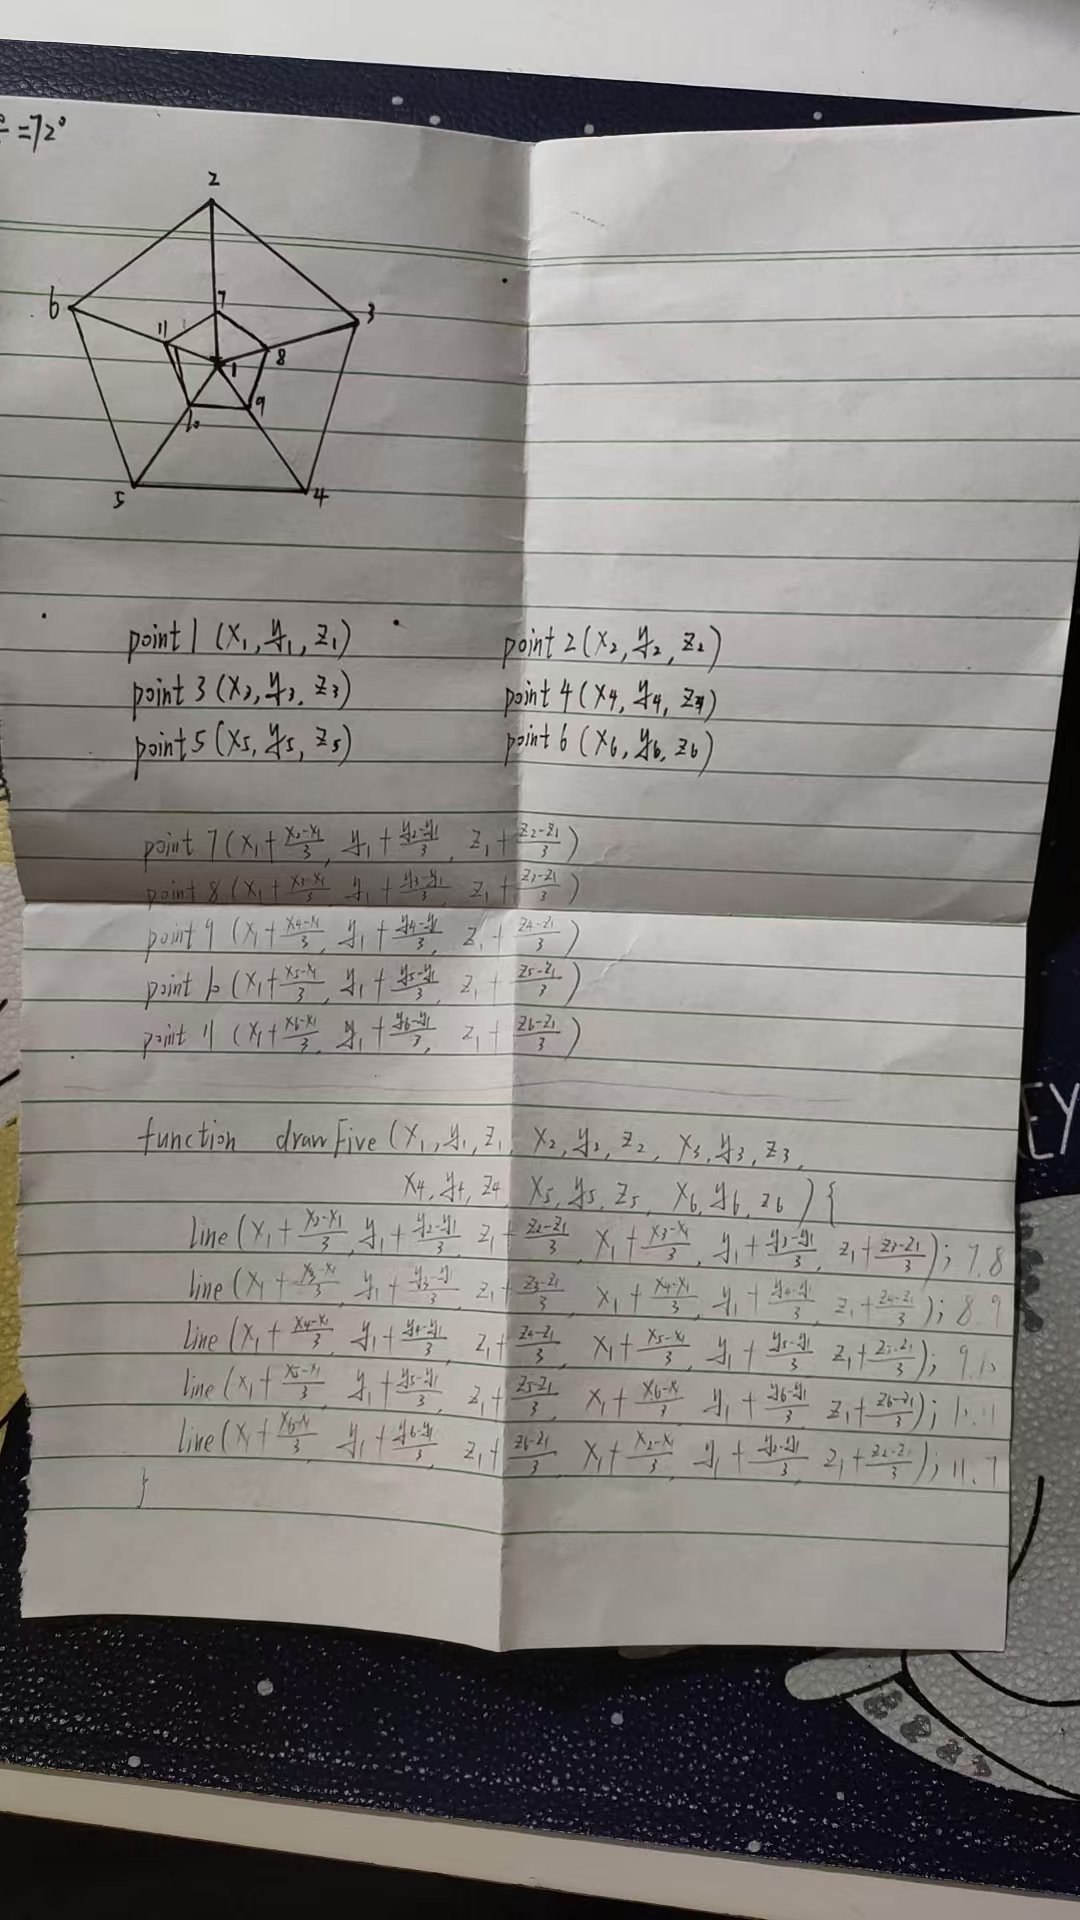 =72°
2
6
3
7
11
8
1
10
9
5
4
point 1 (x₁, y₁, z₁) point 2 (x₂, y₂, z₂)
point 3 (x₃, y₃, z₃) point 4 (x₄, y₄, z₄)
point 5 (x₅, y₅, z₅) point 6 (x₆, y₆, z₆)
point 7 (x₁+(x₂-x₁)/3, y₁+(y₂-y₁)/3, z₁+(z₂-z₁)/3)
point 8 (x₁+(x₃-x₁)/3, y₁+(y₃-y₁)/3, z₁+(z₃-z₁)/3)
point 9 (x₁+(x₄-x₁)/3, y₁+(y₄-y₁)/3, z₁+(z₄-z₁)/3)
point 10 (x₁+(x₅-x₁)/3, y₁+(y₅-y₁)/3, z₁+(z₅-z₁)/3)
point 11 (x₁+(x₆-x₁)/3, y₁+(y₆-y₁)/3, z₁+(z₆-z₁)/3)
function drawFive (x₁, y₁, z₁, x₂, y₂, z₂, x₃, y₃, z₃,
x₄, y₄, z₄, x₅, y₅, z₅, x₆, y₆, z₆) {
line (x₁+(x₂-x₁)/3, y₁+(y₂-y₁)/3, z₁+(z₂-z₁)/3, x₁+(x₃-x₁)/3, y₁+(y₃-y₁)/3, z₁+(z₃-z₁)/3); 7.8
line (x₁+(x₃-x₁)/3, y₁+(y₃-y₁)/3, z₁+(z₃-z₁)/3, x₁+(x₄-x₁)/3, y₁+(y₄-y₁)/3, z₁+(z₄-z₁)/3); 8.9
line (x₁+(x₄-x₁)/3, y₁+(y₄-y₁)/3, z₁+(z₄-z₁)/3, x₁+(x₅-x₁)/3, y₁+(y₅-y₁)/3, z₁+(z₅-z₁)/3); 9.10
line (x₁+(x₅-x₁)/3, y₁+(y₅-y₁)/3, z₁+(z₅-z₁)/3, x₁+(x₆-x₁)/3, y₁+(y₆-y₁)/3, z₁+(z₆-z₁)/3); 10.11
line (x₁+(x₆-x₁)/3, y₁+(y₆-y₁)/3, z₁+(z₆-z₁)/3, x₁+(x₂-x₁)/3, y₁+(y₂-y₁)/3, z₁+(z₂-z₁)/3); 11.7
}
EY